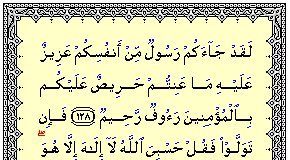 لَقَدْ جَآءَكُمْ رَسُولٌ مِّنْ أَنفُسِكُمْ عَزِيزٌ
عَلَيْهِ مَا عَنِتُّمْ حَرِيصٌ عَلَيْكُم
بِٱلْمُؤْمِنِينَ رَءُوفٌ رَّحِيمٌ ﴿١٢٨﴾ فَإِن
تَوَلَّوْا۟ فَقُلْ حَسْبِىَ ٱللَّهُ لَآ إِلَٰهَ إِلَّا هُوَ